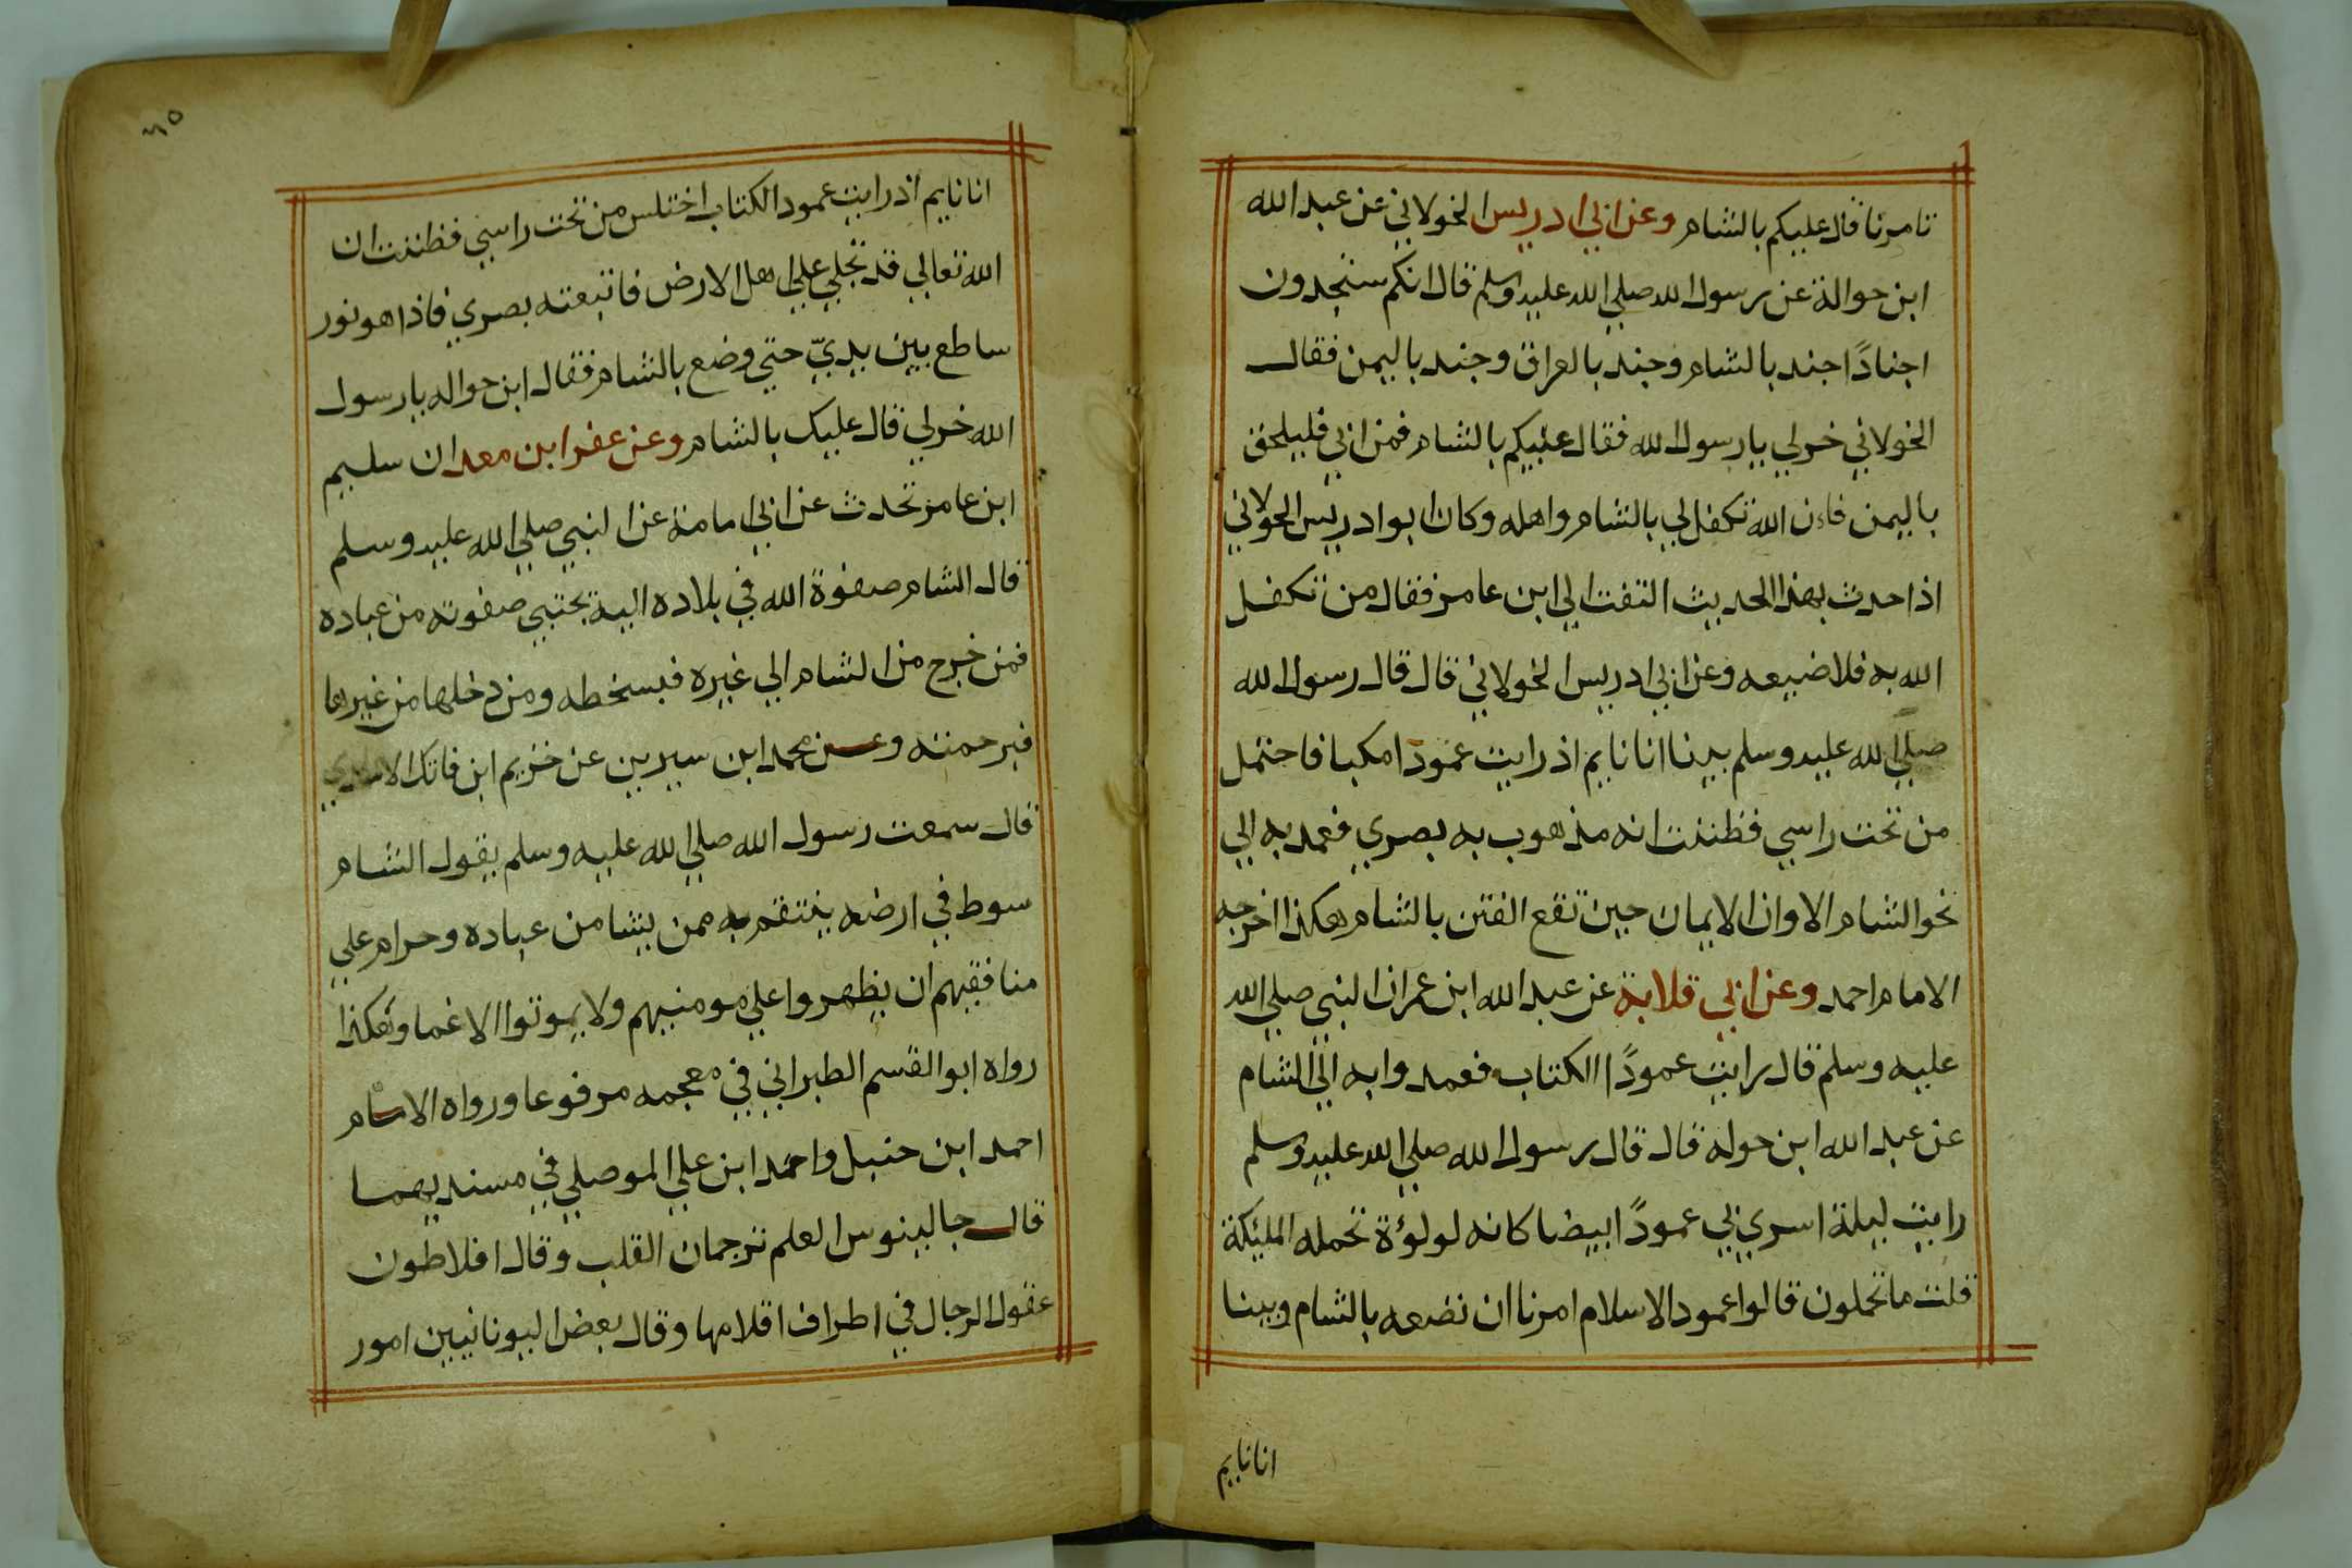 تامرنا قال عليكم بالشام وعن ابي ادريس الخولاني عن عبد الله
ابن حوالة عن رسول الله صلي الله عليه وسلم قال انكم ستجدون
اجنادًا جند بالشام وجند بالعراق وجند باليمن فقال
الخولاني خرلي يا رسول الله فقال عليكم بالشام فمن ابي فليلحق
باليمن فاءن الله تكفل لي بالشام واهله وكان ابو ادريس الخولاني
اذا حدث بهذا الحديث التفت الي ابن عامر فقال من تكفل
الله به فلا ضيعه وعن ابي ادريس الخولاني قال قال رسول الله
صلي الله عليه وسلم بينا انا نايم اذ رايت عمودا مكبا فاحتمل
من تحت راسي فظننت انه مذهوب به بصري فعمد به الي
نحو الشام الا وان الايمان حين تقع الفتن بالشام هكذا اخرجه
الامام احمد وعن ابي قلابة عن عبد الله ابن عمر ان النبي صلي الله
عليه وسلم قال رايت عمودًا الكتاب فعمدوا به الي الشام
عن عبد الله ابن حوله قال قال رسول الله صلي الله عليه وسلم
رايت ليلة اسري بي عمودًا ابيضا كانه لولوة تحمله المليكة
قلت ما تحملون قالوا عمود الاسلام امرنا ان نضعه بالشام وبينا
انا نايم
٦٥
انا نايم اذ رايت عمود الكتاب اختلس من تحت راسي فظننت ان
الله تعالي قد تجلي علي اهل الارض فاتبعته بصري فاذا هو نور
ساطع بين يديّ حتي وضع بالشام فقال ابن حواله يا رسول
الله خرلي قال عليك بالشام وعن عفر ابن معدان سليم
ابن عامر تحدث عن ابي امامة عن النبي صلي الله عليه وسلم
قال الشام صفوة الله في بلاده اليه تجتبي صفوته من عباده
فمن خرج من الشام الي غيره فبسخطه ومن دخلها من غيرها
فبرحمته وعن محمد ابن سيرين عن خزيم ابن فاتك الاسدي
قال سمعت رسول الله صلي الله عليه وسلم يقول الشام
سوط في ارضه ينتقم به ممن يشا من عباده وحرام علي
منافقيهم ان يظهروا علي مومنيهم ولا يموتوا الا غما وهكذا
رواه ابو القسم الطبراني في معجمه مرفوعا ورواه الامام
احمد ابن حنبل واحمد ابن علي الموصلي في مسنديهما
قال جالينوس العلم ترجمان القلب وقال افلاطون
عقول الرجال في اطراف اقلامها وقال بعض اليونانيين امور